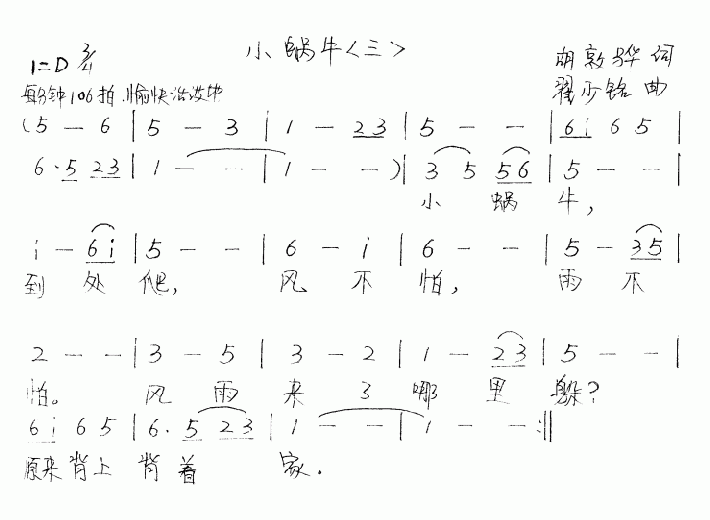 小蜗牛<三>
1=D 3/4
胡敦骅 词
每分钟106拍 愉快活泼地
翟少铭 曲
(5 - 6 | 5 - 3 | 1 - 23 | 5 - - | 6i 6 5 |
6·5 23 | 1 - - | 1 - -)| 3 5 56 | 5 - - |
小 蜗 牛,
i - 6i | 5 - - | 6 - i | 6 - - | 5 - 35 |
到 处 爬, 风 不 怕, 雨 不
2 - - | 3 - 5 | 3 - 2 | 1 - 23 | 5 - - |
怕。 风 雨 来 了 哪 里 躲?
6i 6 5 | 6·5 23 | 1 - - | 1 - - :||
原来背上 背着 家.